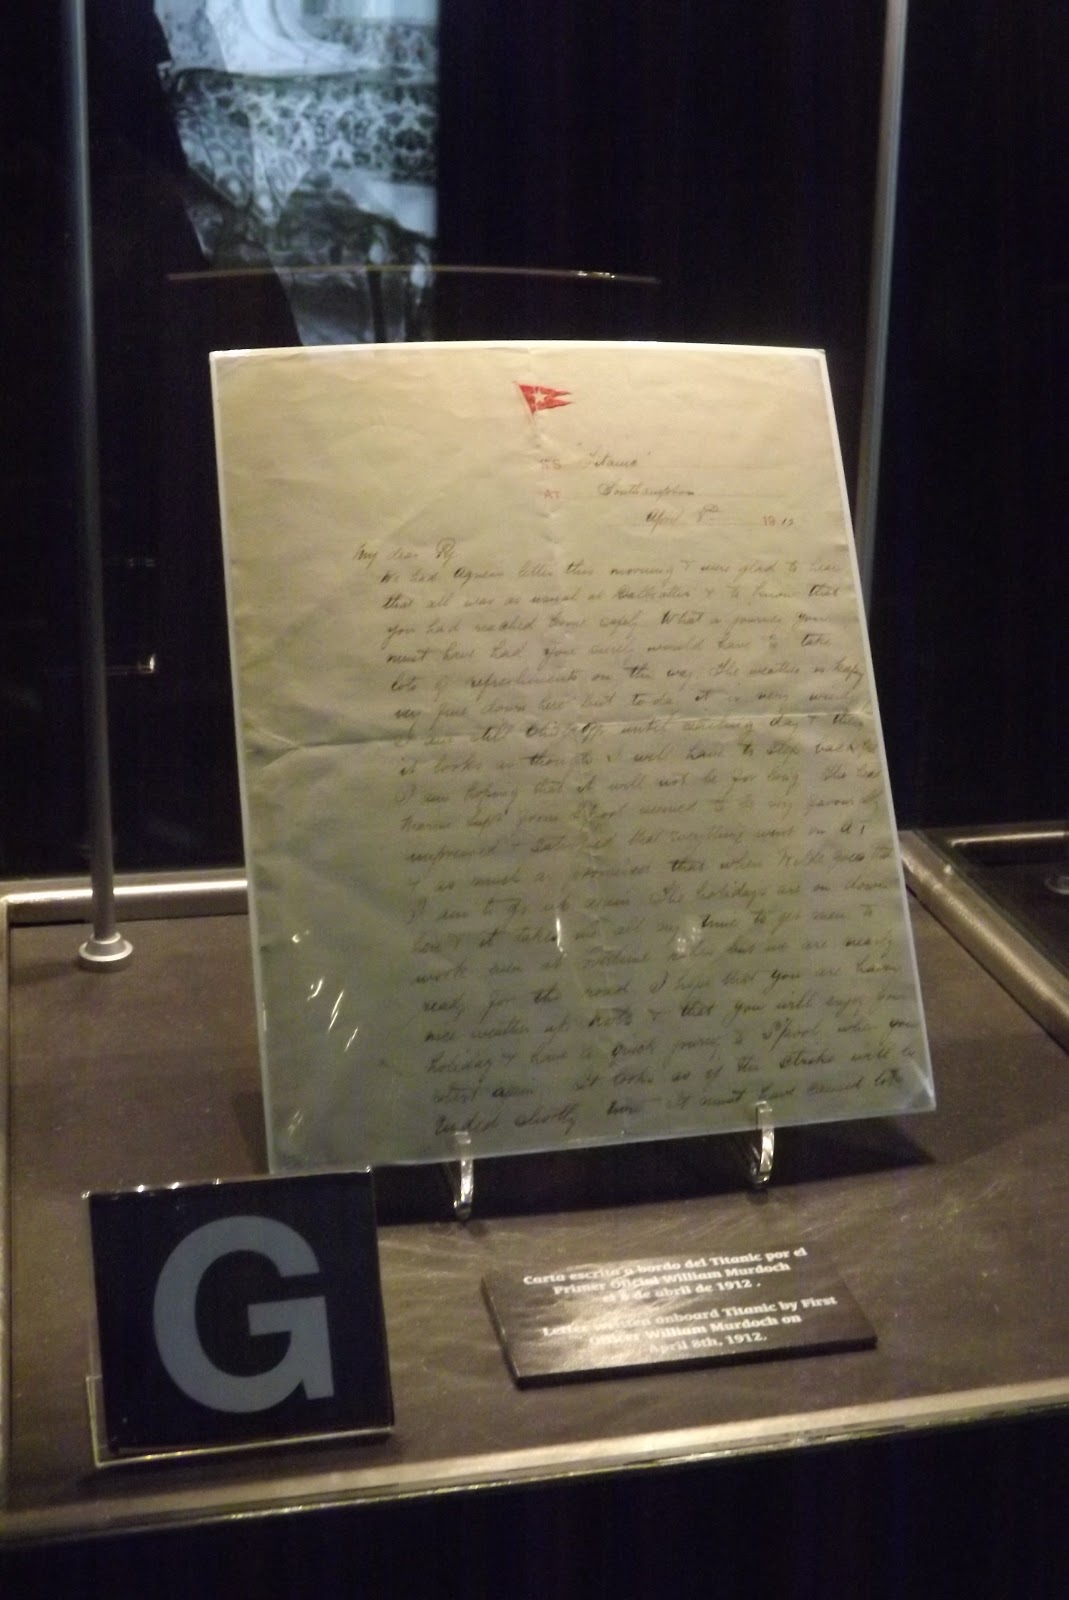 "Titanic"
AT Southampton
April 8th 1912
My dear Pg
We had Agnes's letter this morning & were glad to hear
that all was as usual at Dalbeattie & to know that
you had reached home safely. What a journey you
must have had your surely would have to take
lots of refreshments on the way. The weather is keeping
very fine down here but to-day it is very windy
I am still Chief Offr until sailing day & then
it looks as though I will have to step back so
I am hoping that it will not be for long. The head
Marine Supt from L'Pool seemed to be very favourably
impressed & satisfied that everything went on A1
& as much as promised that when Wilde goes
I am to go up again. The holidays are on down
here & it takes me all my time to get men to
work even at overtime rates but we are nearly
ready for the road I hope that you are having
nice weather at & that you will enjoy your
holiday & have a quick journey to L'Pool when you
start again. It looks as if the strike will be
ended shortly now it must have caused lots
G
Carta escrita a bordo del Titanic por el
Primer Oficial William Murdoch
el 8 de abril de 1912.
Letter written onboard Titanic by First
Officer William Murdoch on
April 8th, 1912.